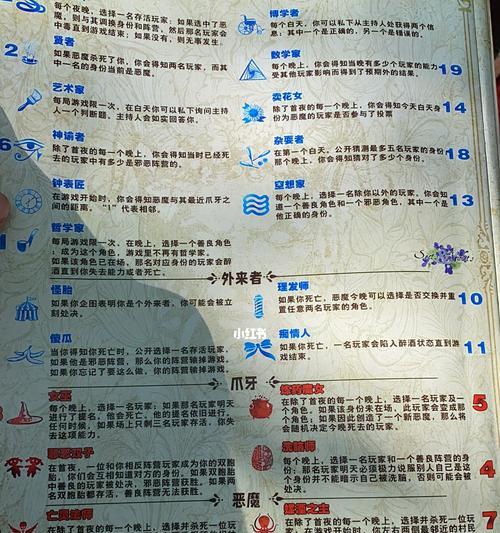 每个夜晚，选择一名存活玩家：如果选中了恶
魔，则与其调换身份和阵营，然后那名玩家会
中毒直到游戏结束；如果没有，则无事发生。
2
贤者
如果恶魔杀死了你，你会得知两名玩家，而其
中一名的身份当前是恶魔。
艺术家
每局游戏限一次，在白天你可以私下询问主持
人一个判断题，主持人会如实回答你。
6
神谕者
除了首夜的每一个晚上，你会得知当时已经死
去的玩家中有多少是邪恶阵营的。
钟表匠
在游戏开始时，你会得知恶魔与其最近爪牙之
间的距离。“1”代表相邻。
哲学家
每局游戏限一次，在晚上，选择一个善良角色
：成为这个角色，游戏里不再有哲学家。
如果该角色已在场，那名对应身份的玩家会醉
酒直到你失去能力或者死亡。
博学者
每个白天，你可以私下从主持人处获得两个信
息：其中一个是正确的，另一个是错误的。
数学家
每个晚上，你会得知当晚有多少个玩家的能力
受其他玩家影响而得到了预期外的结果。
19
卖花女
除了首夜的每一个晚上，你会得知今天白天
份为恶魔的玩家是否参与了投票
14
杂耍者
在第一个白天，公开猜测最多五名玩家的身份
那个晚上，你会得知猜对了多少个身份。
18
空想家
每个晚上，选择一名除你以外的玩家，你会知
道一个善良角色和一个邪恶角色，其中一个是
他正确的身份。
13
外来者
怪胎
如果你企图表明你是个外来者，你可能会被立
刻处决。
傻瓜
当你得知你死亡时，公开选择一名存活玩家，
如果他是邪恶阵营，那么你的阵营输掉游戏。
如果你忘记了要这么做，你的阵营输掉游戏。
理发师
如果你死亡，恶魔今晚可以选择是否交换并重
置任意两名玩家的角色。
10
痴情人
如果你死亡，一名玩家会陷入醉酒状态直到游
戏结束。
11
小红书
爪牙
女巫
每个晚上，选择一名玩家：如果那名玩家明天
进行了提名，他会死亡，他的提名依旧进行。
任何时候，如果场上只剩三名玩家存活，你失
去这项能力。
双子
在首夜，一位和你相反阵营玩家成为你的双胞
胎，你们会互相知道对方的身份。如果双胞胎
中善良的玩家被处决，邪恶阵营获胜。如果两
名双胞胎都存活，善良阵营无法获胜。
魔女
在除了首夜的每一个晚上，选择一名玩家及一
个角色，如果该身份未在场，此玩家会变成那
个角色，如果因此创造了一个新恶魔，那么将
会随机决定今晚死去的玩家。
5
洗脑师
每个晚上，选择一名玩家和一个善良阵营的身
份：那名玩家明天必须极力说服别人自己是这
个身份并不能暗示自己被洗脑，否则可能会被
处决。
4
恶魔
亡灵法师
在除了首夜的每个晚上，选择并杀死一位玩
之主
在游戏开始时，你左右两侧最邻近的村民
7